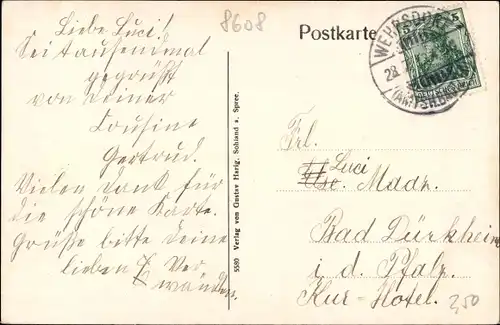 8608
Postkarte
Liebe Luci!
Sei tausendmal
gegrüßt
von Deiner
Cousine
Gertrud.
Vielen Dank für
die schöne Karte.
Grüße bitte Deine
lieben Ver
wandten.
5589 Verlag vom Gustav Harig, Sohland a. Spree.
WEHRSDORF
28
(AMTSH.
Frl.
Luci
Madr.
Bad Dürkheim
i. d. Pfalz.
Kur-Hotel.
2,50